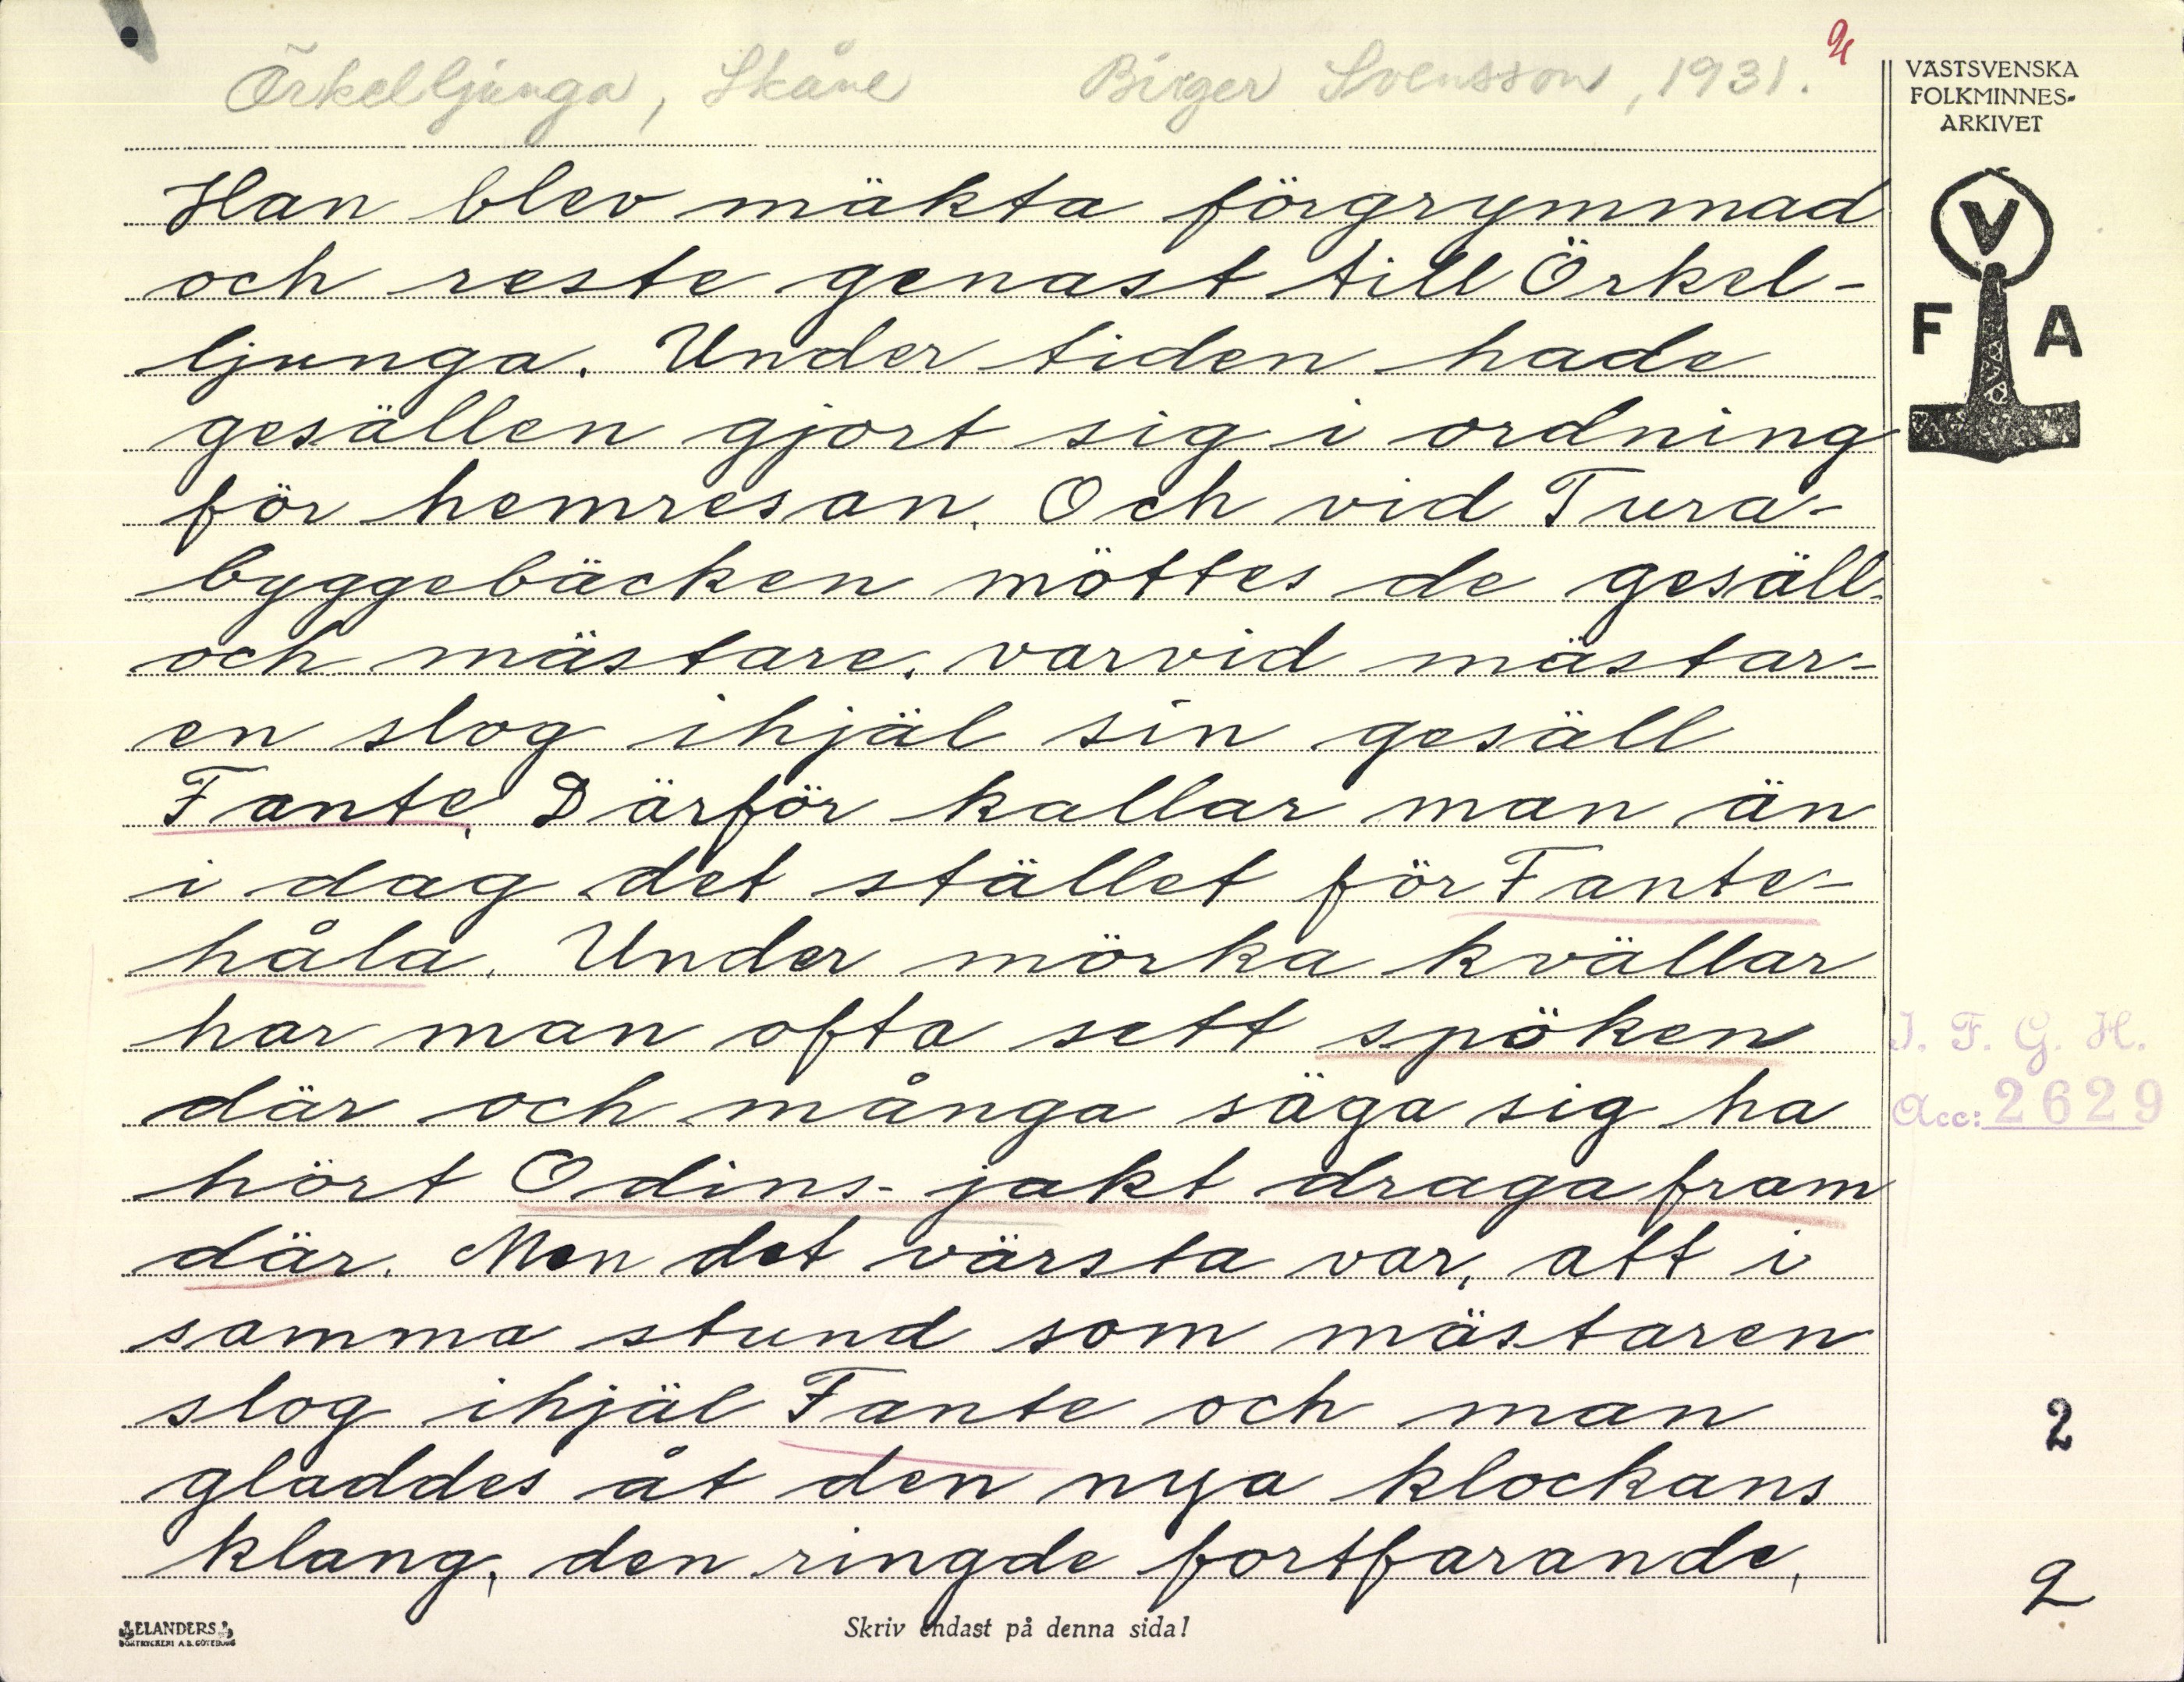 Örkelljunga, Skåne Birger Svensson, 1931.
VÄSTSVENSKA
FOLKMINNES-
ARKIVET
V
F A
Han blev mäkta förgrymmad
och reste genast till Örkel-
ljunga. Under tiden hade
gesällen gjort sig i ordning
för hemresan. Och vid Tura-
byggebäcken möttes de gesäll
och mästare, varvid mästar-
en slog ihjäl sin gesäll
Fante. Därför kallar man än
i dag det stället för Fante-
håla. Under mörka kvällar
har man ofta sett spöken
där och många säga sig ha
hört Odins-jakt draga fram
där. Men det värsta var, att i
samma stund som mästaren
slog ihjäl Fante och man
gladdes åt den nya klockans
klang, den ringde fortfarande,
I. F. G. H.
Acc: 2629
2
2
ELANDERS
BOKTRYCKERI A.B. GÖTEBORG
Skriv endast på denna sida!